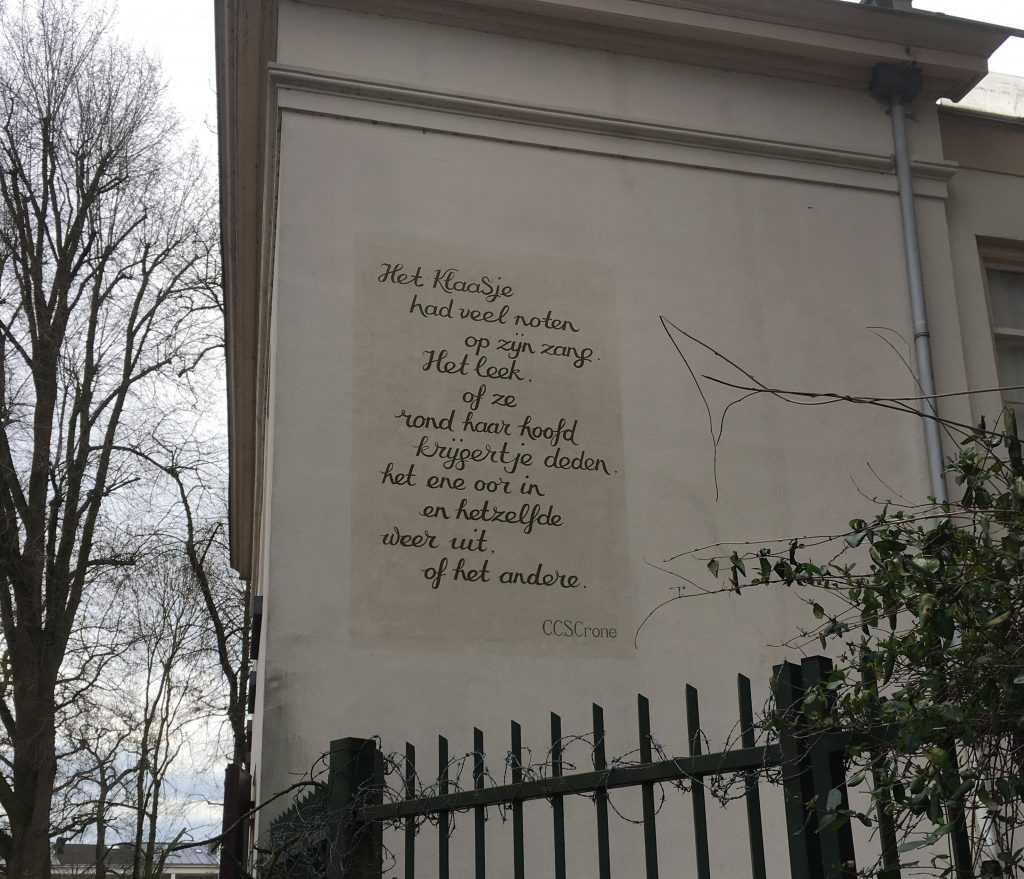 Het Klaasje
had veel noten
op zijn zang.
Het leek,
of ze
rond haar hoofd
krijgertje deden,
het ene oor in
en hetzelfde
weer uit,
of het andere.
CCSCrone